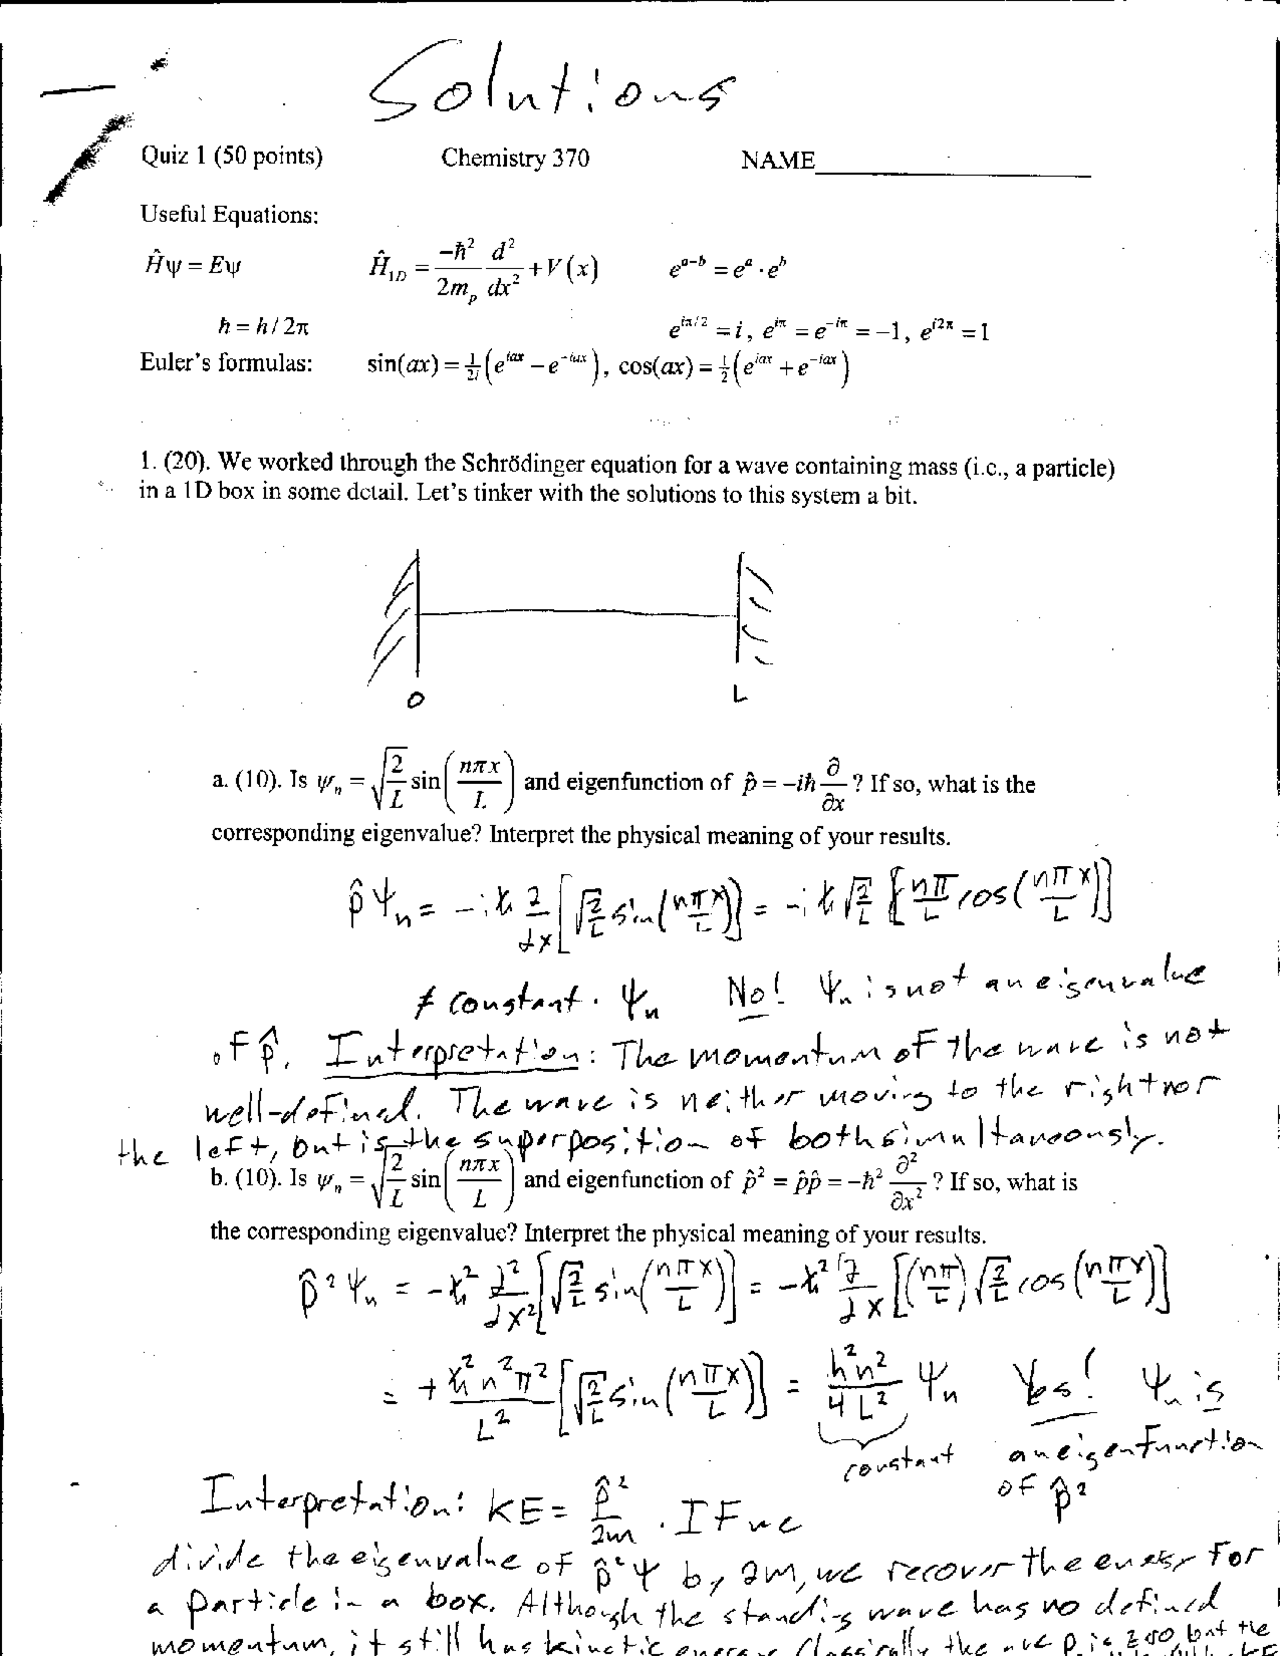 Solutions
Quiz 1 (50 points) Chemistry 370 NAME
Useful Equations:
Ĥψ = Eψ Ĥ₁D = -ħ²/2mₚ d²/dx² + V(x) e^(a-b) = e^a · e^b
ħ = h/2π e^(iπ/2) = i, e^(iπ) = e^(-iπ) = -1, e^(i2π) = 1
Euler's formulas: sin(ax) = 1/2i (e^(iax) - e^(-iax)), cos(ax) = 1/2 (e^(iax) + e^(-iax))
1. (20). We worked through the Schrödinger equation for a wave containing mass (i.e., a particle)
in a 1D box in some detail. Let's tinker with the solutions to this system a bit.
0 L
a. (10). Is ψₙ = √(2/L) sin(nπx/L) and eigenfunction of p̂ = -iħ ∂/∂x ? If so, what is the
corresponding eigenvalue? Interpret the physical meaning of your results.
p̂ψₙ = -iħ ∂/∂x [√(2/L) sin(nπx/L)] = -iħ √(2/L) [nπ/L cos(nπx/L)]
≠ constant · ψₙ No! ψₙ is not an eigenvalue
of p̂. Interpretation: The momentum of the wave is not
well-defined. The wave is neither moving to the right nor
the left, but is the superposition of both simultaneously.
b. (10). Is ψₙ = √(2/L) sin(nπx/L) and eigenfunction of p̂² = p̂p̂ = -ħ² ∂²/∂x² ? If so, what is
the corresponding eigenvalue? Interpret the physical meaning of your results.
p̂²ψₙ = -ħ² ∂²/∂x² [√(2/L) sin(nπx/L)] = -ħ² ∂/∂x [(nπ/L) √(2/L) cos(nπx/L)]
= + ħ²n²π²/L² [√(2/L) sin(nπx/L)] = h²n²/4L² ψₙ Yes! ψₙ is
constant an eigenfunction
of p̂²
Interpretation: KE = p̂²/2m. If we
divide the eigenvalue of p̂²ψ by 2m, we recover the energy for
a particle in a box. Although the standing wave has no defined
momentum, it still has kinetic energy. Classically the ave p is zero but the